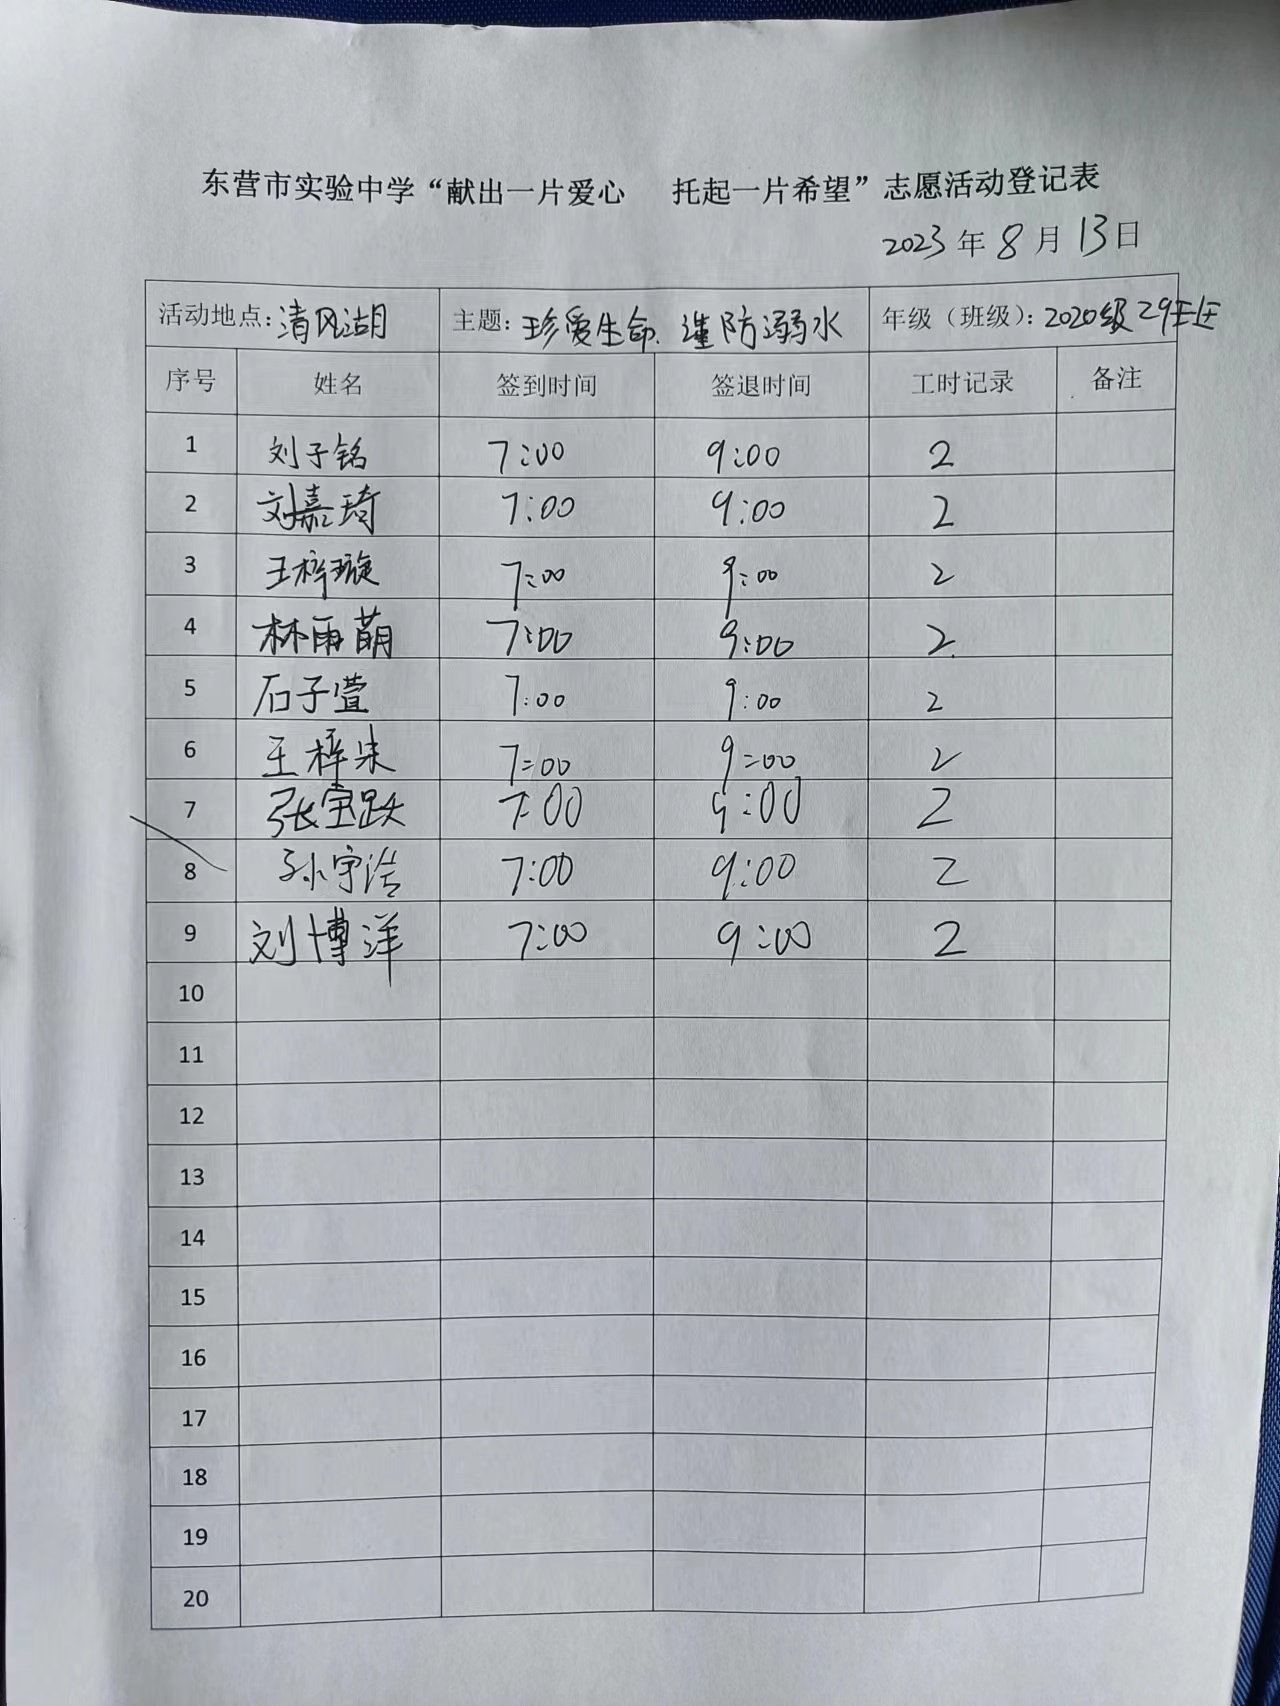 东营市实验中学“献出一片爱心 托起一片希望”志愿活动登记表
2023年8月13日
活动地点:清风湖 主题:珍爱生命 谨防溺水 年级（班级）:2020级29班
序号 姓名 签到时间 签退时间 工时记录 备注
1 刘子铭 7:00 9:00 2
2 刘嘉琦 7:00 9:00 2
3 王梓璇 7:00 9:00 2
4 林雨萌 7:00 9:00 2
5 石子萱 7:00 9:00 2
6 王梓朱 7:00 9:00 2
7 张宝跃 7:00 9:00 2
8 孙宇浩 7:00 9:00 2
9 刘博洋 7:00 9:00 2
10
11
12
13
14
15
16
17
18
19
20